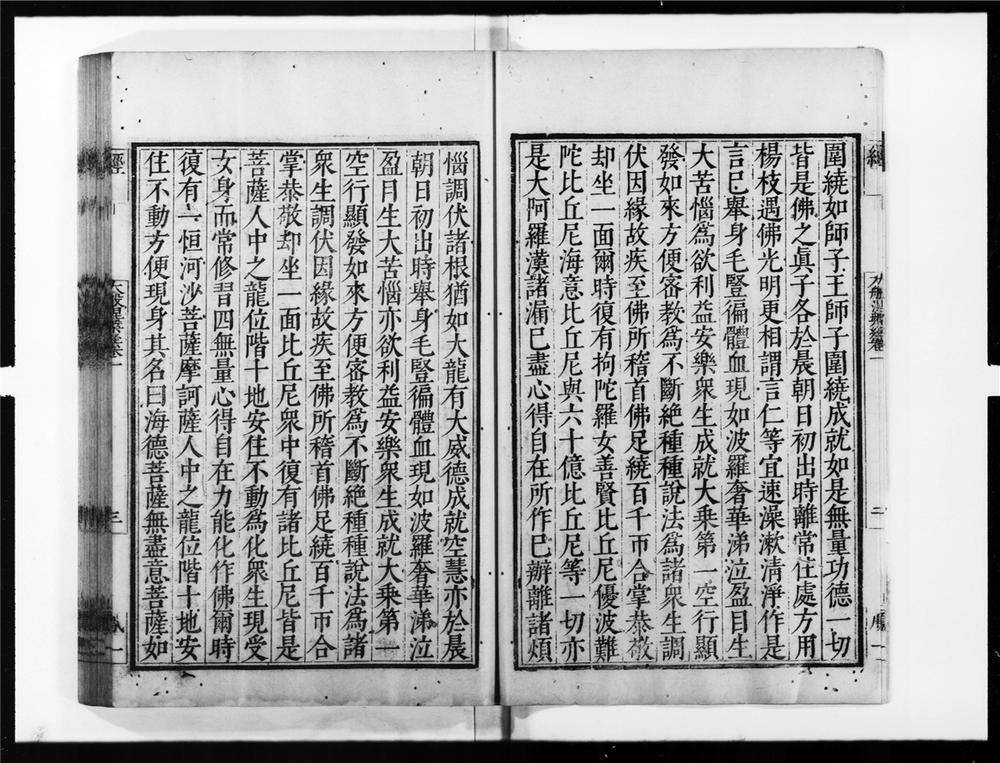 圍繞如師子王師子圍繞成就如是無量功德一切
皆是佛之眞子各於晨朝日初出時離常住處方用
楊枝遇佛光明更相謂言仁等宜速澡漱清淨作是
言已舉身毛豎徧體血現如波羅奢華涕泣盈目生
大苦惱爲欲利益安樂衆生成就大乘第一空行顯
發如來方便密教爲不斷絶種種說法爲諸衆生調
伏因緣故疾至佛所稽首佛足繞百千帀合掌恭敬
却坐一面爾時復有拘陀羅女善賢比丘尼優波難
陀比丘尼海意比丘尼與六十億比丘尼等一切亦
是大阿羅漢諸漏已盡心得自在所作已辦離諸煩
惱調伏諸根猶如大龍有大威德成就空慧亦於晨
朝日初出時舉身毛豎徧體血現如波羅奢華涕泣
盈目生大苦惱亦欲利益安樂衆生成就大乘第一
空行顯發如來方便密教爲不斷絶種種說法爲諸
衆生調伏因緣故疾至佛所稽首佛足繞百千帀合
掌恭敬却坐一面比丘尼衆中復有諸比丘尼皆是
菩薩人中之龍位階十地安住不動爲化衆生現受
女身而常修習四無量心得自在力能化作佛爾時
復有一恒河沙菩薩摩訶薩人中之龍位階十地安
住不動方便現身其名曰海德菩薩無盡意菩薩如
經
三